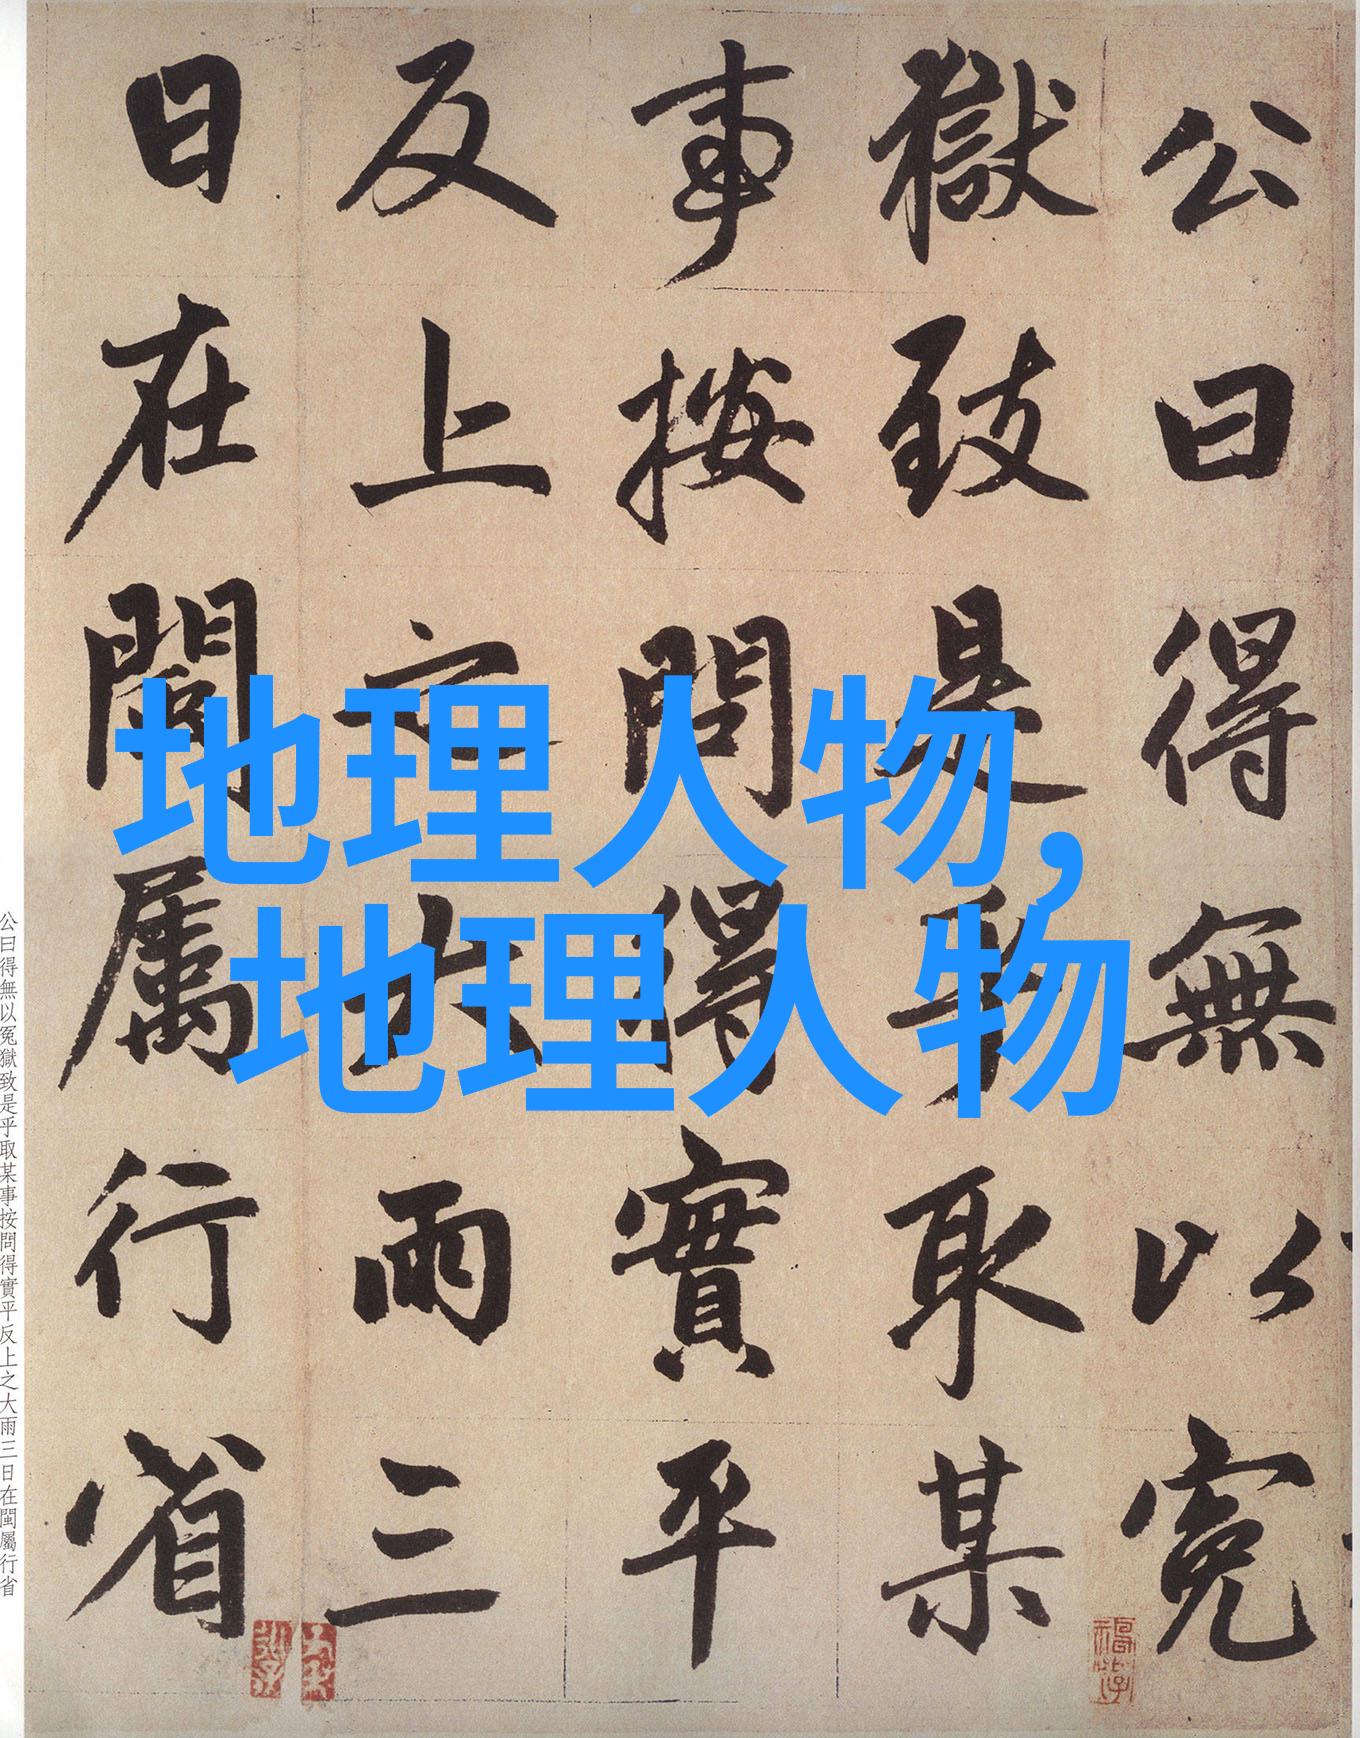 公曰得無以冤
獄致是乎取某
事按問得實平
反上之大雨三
日在閩屬行省
地理人物,
地理人物
公曰得無以冤獄致是乎取某事按問得實平反上之大雨三日在閩屬行省